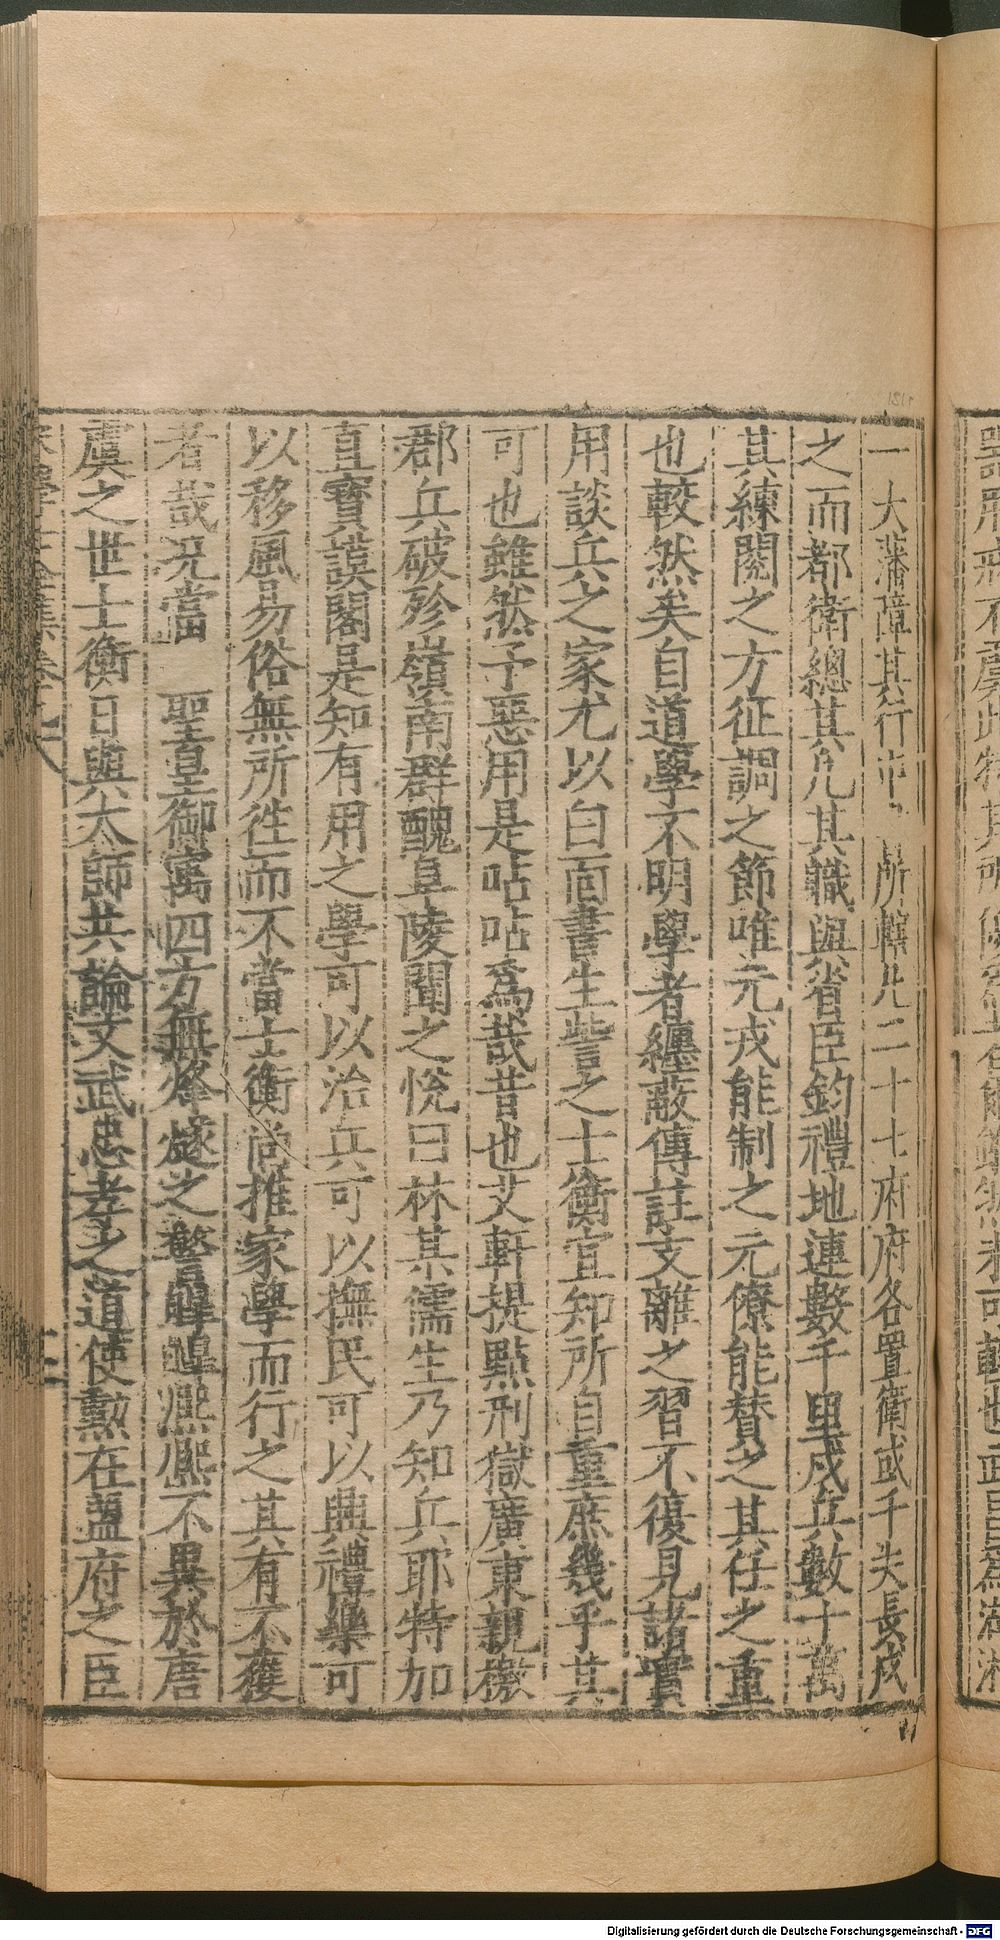 一大藩障其行中所轄凡二十七府府各置衛或千夫長戍
之而都衛總其凡其職與省臣鈞禮地連數千里戍兵數十萬
其練閱之方征調之節唯元戎能制之元僚能贊之其任之重
也較然矣自道學不明學者纏蔽傳註支離之習不復見諸實
用談兵之家尤以白面書生訾之士衡宜知所自重庶幾乎其
可也雖然予惡用是呫呫爲哉昔也艾軒提點刑獄廣東親檄
郡兵破殄嶺南群醜阜陵聞之悅曰林某儒生乃知兵耶特加
直寶謨閣是知有用之學可以治兵可以撫民可以興禮樂可
以移風易俗無所往而不當士衡尚推家學而行之其有不獲
者哉况當　聖皇御寓四方無烽燧之警皥皥熙熙不異於唐
虞之世士衡日與太師共論文武忠孝之道使勲在盟府之臣
Digitalisierung gefördert durch die Deutsche Forschungsgemeinschaft - DFG